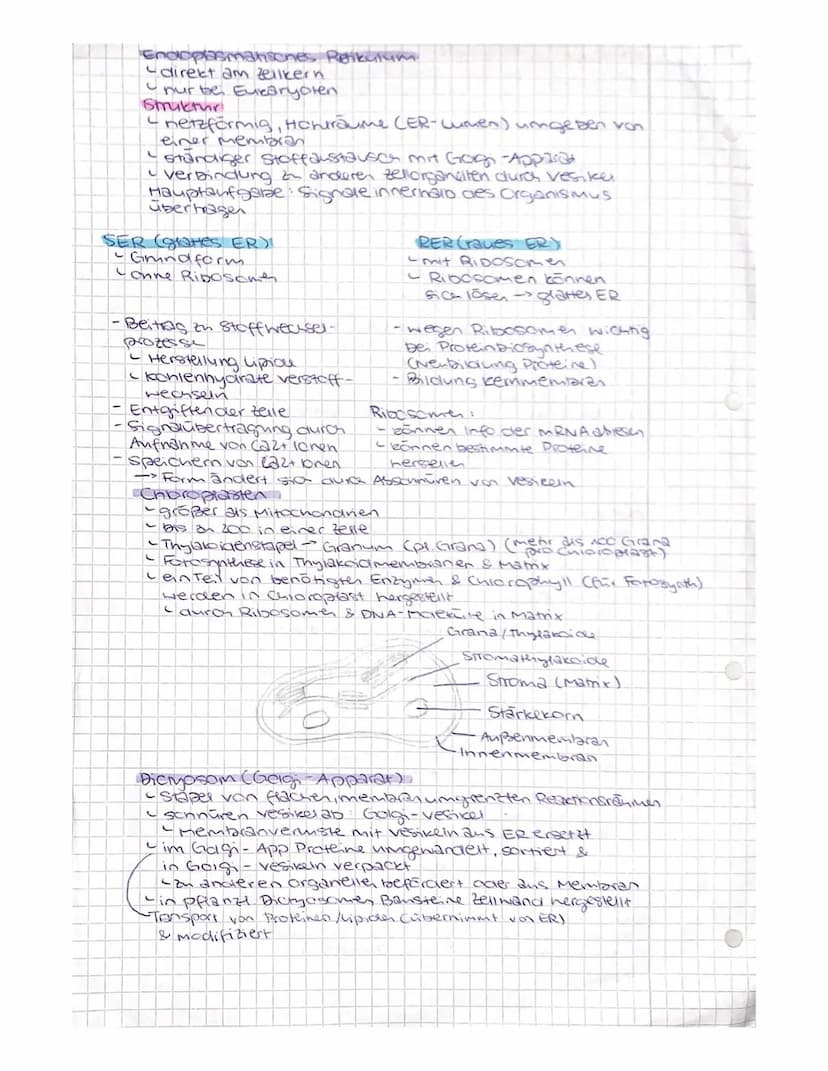 Endoplasmatisches Retikulum
↳ direkt am Zellkern
↳ nur bei Eukaryoten
Struktur
↳ netzförmig, Hohlräume (ER-Lumen) umgeben von
einer Membran
↳ ständiger Stoffaustausch mit Golgi-Apparat
↳ Verbindung zu anderen Zellorganellen durch Vesikel
Hauptaufgabe: Signale innerhalb des Organismus
übertragen
SER (glattes ER)
↳ Grundform
↳ ohne Ribosomen
- Beitrag zu Stoffwechsel-
prozesse
↳ Herstellung Lipide
↳ Kohlenhydrate verstoff-
wechseln
- Entgiften der Zelle
- Signalübertragung durch
Aufnahme von Ca2+ Ionen
- Speichern von Ca2+ Ionen
RER (raues ER)
↳ mit Ribosomen
↳ Ribosomen können
sich lösen → glattes ER
- wegen Ribosomen wichtig
bei Proteinbiosynthese
(Neubildung Proteine)
- Bildung Kernmembran
Ribosomen:
↳ können Info der mRNA ablesen
↳ können bestimmte Proteine
herstellen
→ Form ändert sich durch Abschnüren von Vesikeln
Chloroplasten
↳ größer als Mitochondrien
↳ bis zu 200 in einer Zelle
↳ Thylakoidenstapel → Granum (pl. Grana) (mehr als 100 Grana
pro Chloroplast)
↳ Fotosynthese in Thylakoidmembranen & Matrix
↳ ein Teil von benötigten Enzymen & Chlorophyll (für Fotosynth)
werden in Chloroplast hergestellt
↳ durch Ribosomen & DNA-Moleküle in Matrix
Grana/Thylakoide
Stromathylakoide
Stroma (Matrix)
Stärkekorn
Außenmembran
Innenmembran
Dictyosom (Golgi-Apparat)
↳ Stapel von flachen, membranumgrenzten Reaktionsräumen
↳ schnüren Vesikel ab: Golgi-Vesikel
↳ Membranverluste mit Vesikeln aus ER ersetzt
↳ im Golgi-App Proteine umgewandelt, sortiert &
in Golgi-Vesikeln verpackt
↳ zu anderen Organellen befördert oder aus Membran
↳ in pflanzl. Dictyosomen Bausteine Zellwand hergestellt
Transport von Proteinen/Lipiden (übernimmt von ER)
& modifiziert